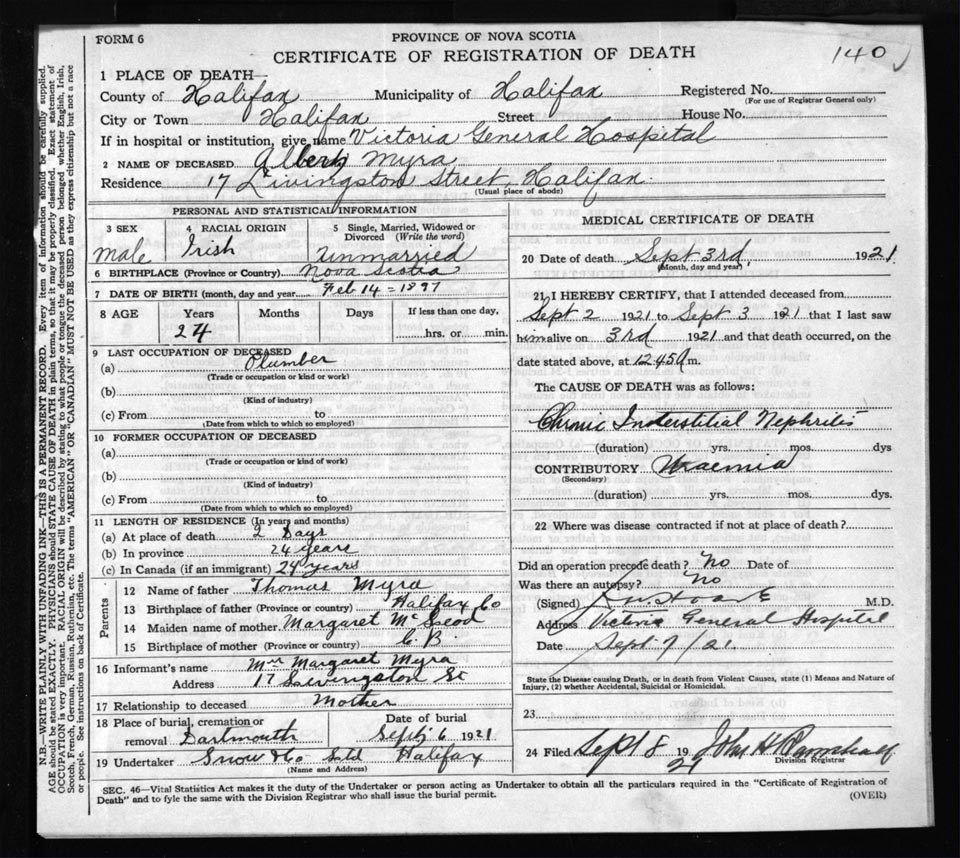 FORM 6
PROVINCE OF NOVA SCOTIA
CERTIFICATE OF REGISTRATION OF DEATH
140
1 PLACE OF DEATH—
County of Halifax Municipality of Halifax Registered No.
(For use of Registrar General only)
City or Town Halifax Street House No.
If in hospital or institution, give name Victoria General Hospital
2 NAME OF DECEASED Albert Myra
Residence 17 Livingston Street, Halifax.
(Usual place of abode)
PERSONAL AND STATISTICAL INFORMATION
3 SEX
male
4 RACIAL ORIGIN
Irish
5 Single, Married, Widowed or Divorced (Write the word)
unmarried
6 BIRTHPLACE (Province or Country) Nova Scotia
7 DATE OF BIRTH (month, day and year Feb 14 - 1897
8 AGE Years Months Days If less than one day,
24 hrs. or min.
9 LAST OCCUPATION OF DECEASED
(a) Plumber
(Trade or occupation or kind of work)
(b)
(Kind of industry)
(c) From to
(Date from which to which so employed)
10 FORMER OCCUPATION OF DECEASED
(a)
(Trade or occupation or kind of work)
(b)
(Kind of industry)
(c) From to
(Date from which to which so employed)
11 LENGTH OF RESIDENCE (In years and months)
(a) At place of death 2 Days
(b) In province 24 years
(c) In Canada (if an immigrant) 24 years
Parents
12 Name of father Thomas Myra
13 Birthplace of father (Province or country) Halifax Co
14 Maiden name of mother. Margaret
15 Birthplace of mother (Province or country) C. B.
16 Informant's name Mrs Margaret Myra
Address 17 Livingston St
17 Relationship to deceased Mother
18 Place of burial, cremation or removal Dartmouth
Date of burial
Sept 6 1921
19 Undertaker Snow & Co Ltd Halifax
(Name and Address)
MEDICAL CERTIFICATE OF DEATH
20 Date of death Sept 3rd, 1921
(Month, day and year)
21 I HEREBY CERTIFY, that I attended deceased from
Sept 2 1921 to Sept 3 1921 that I last saw
him alive on 3rd 1921 and that death occurred, on the
date stated above, at 12.45 A m.
The CAUSE OF DEATH was as follows:
Chronic Interstitial Nephritis
(duration) yrs. mos. dys
CONTRIBUTORY Uraemia
(Secondary)
(duration) yrs. mos. dys.
22 Where was disease contracted if not at place of death?
Did an operation precede death? No Date of
Was there an autopsy? no
(Signed) M.D.
Address Victoria General Hospital
Date Sept 7/21.
State the Disease causing Death, or in death from Violent Causes, state (1) Means and Nature of
Injury, (2) whether Accidental, Suicidal or Homicidal.
23
24 Filed Sept 8 1921 John H
Division Registrar
SEC. 46—Vital Statistics Act makes it the duty of the Undertaker or person acting as Undertaker to obtain all the particulars required in the "Certificate of Registration of
Death" and to fyle the same with the Division Registrar who shall issue the burial permit.
(OVER)
N.B.—WRITE PLAINLY WITH UNFADING INK—THIS IS A PERMANENT RECORD. Every item of information should be carefully supplied.
AGE should be stated EXACTLY. PHYSICIANS should STATE CAUSE OF DEATH in plain terms, so that it may be properly classified. Exact statement of
OCCUPATION is very important. RACIAL ORIGIN will be described by stating to what people or tongue the deceased person belonged whether English, Irish,
Scotch, French, German, Russian, Ruthenian, etc. The terms "AMERICAN" OR "CANADIAN" MUST NOT BE USED as they express citizenship but not a race
or people. See instructions on back of Certificate.